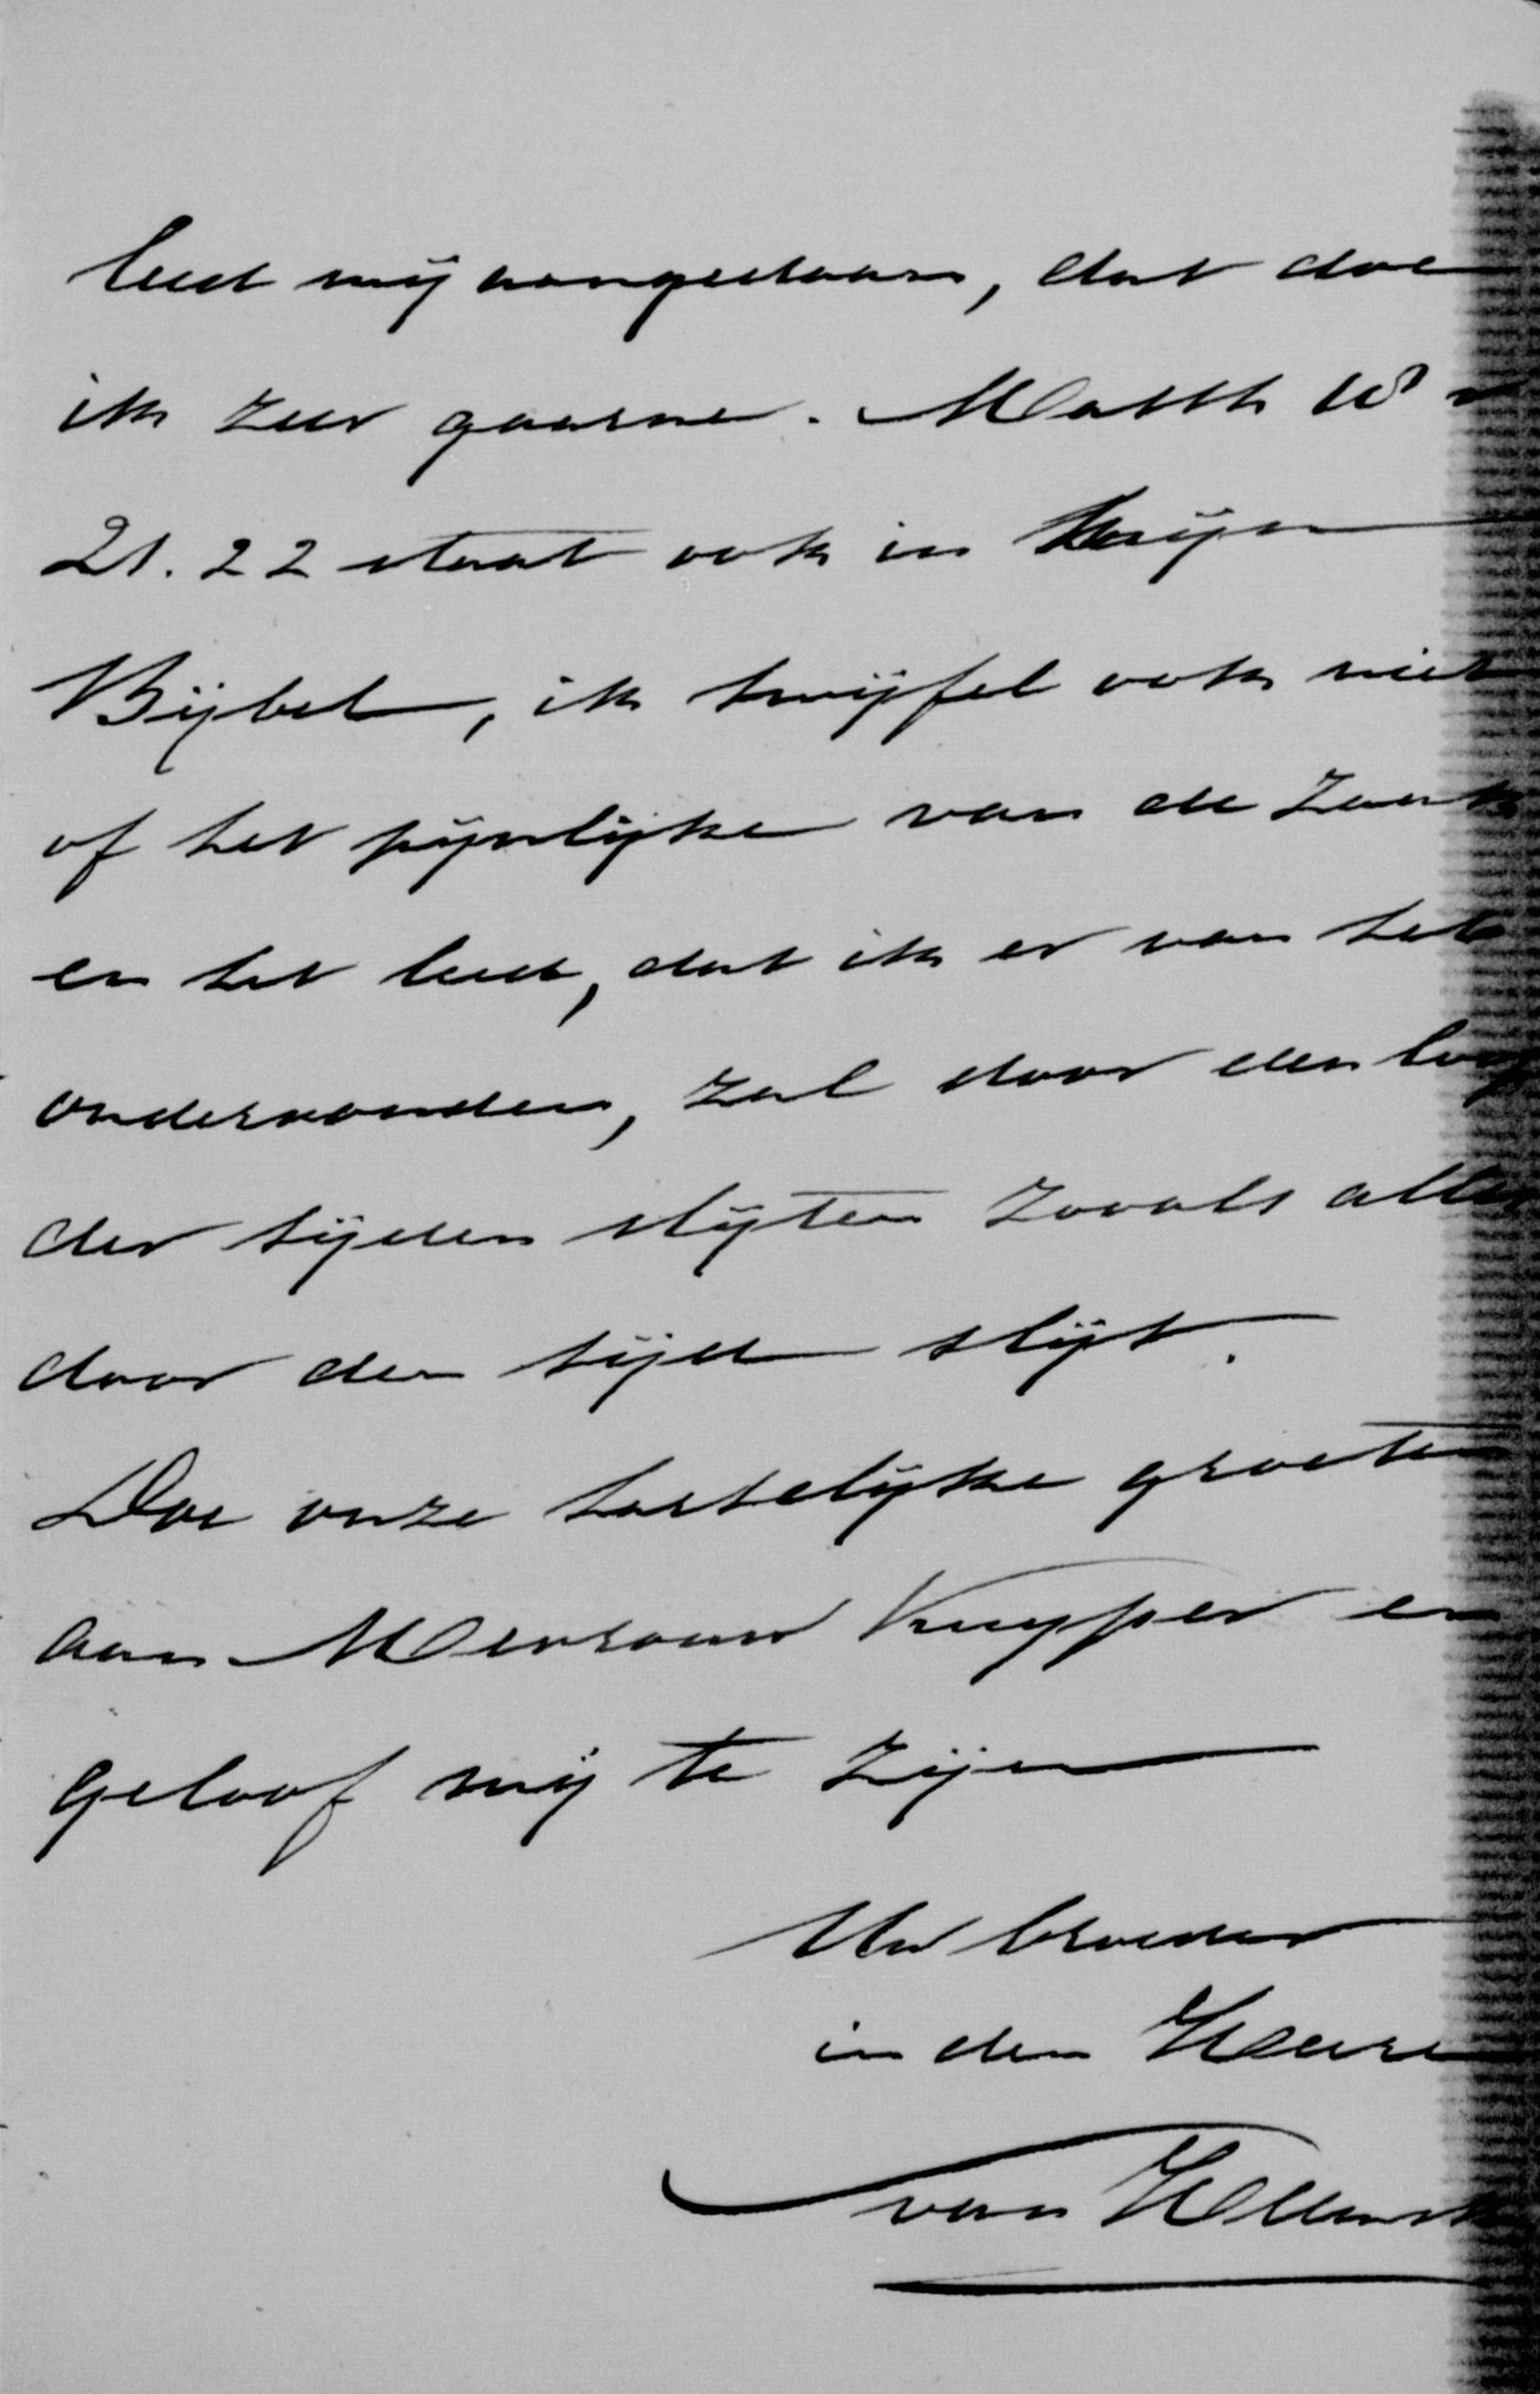 leed mij aangedaan, dat doe
ik zeer gaarne. Matth 18 v
21.22 staat ook in mijn
Bijbel, ik twijfel ook niet
of het pijnlijke van de zaak
en het leed, dat ik er van heb
ondervonden, zal door den loop
der tijden slijten zooals alles
door den tijd slijt.
Doe onze hartelijke groeten
aan Mevrouw Kuyper en
geloof mij te zijn
Uw broeder
in den Heere
van